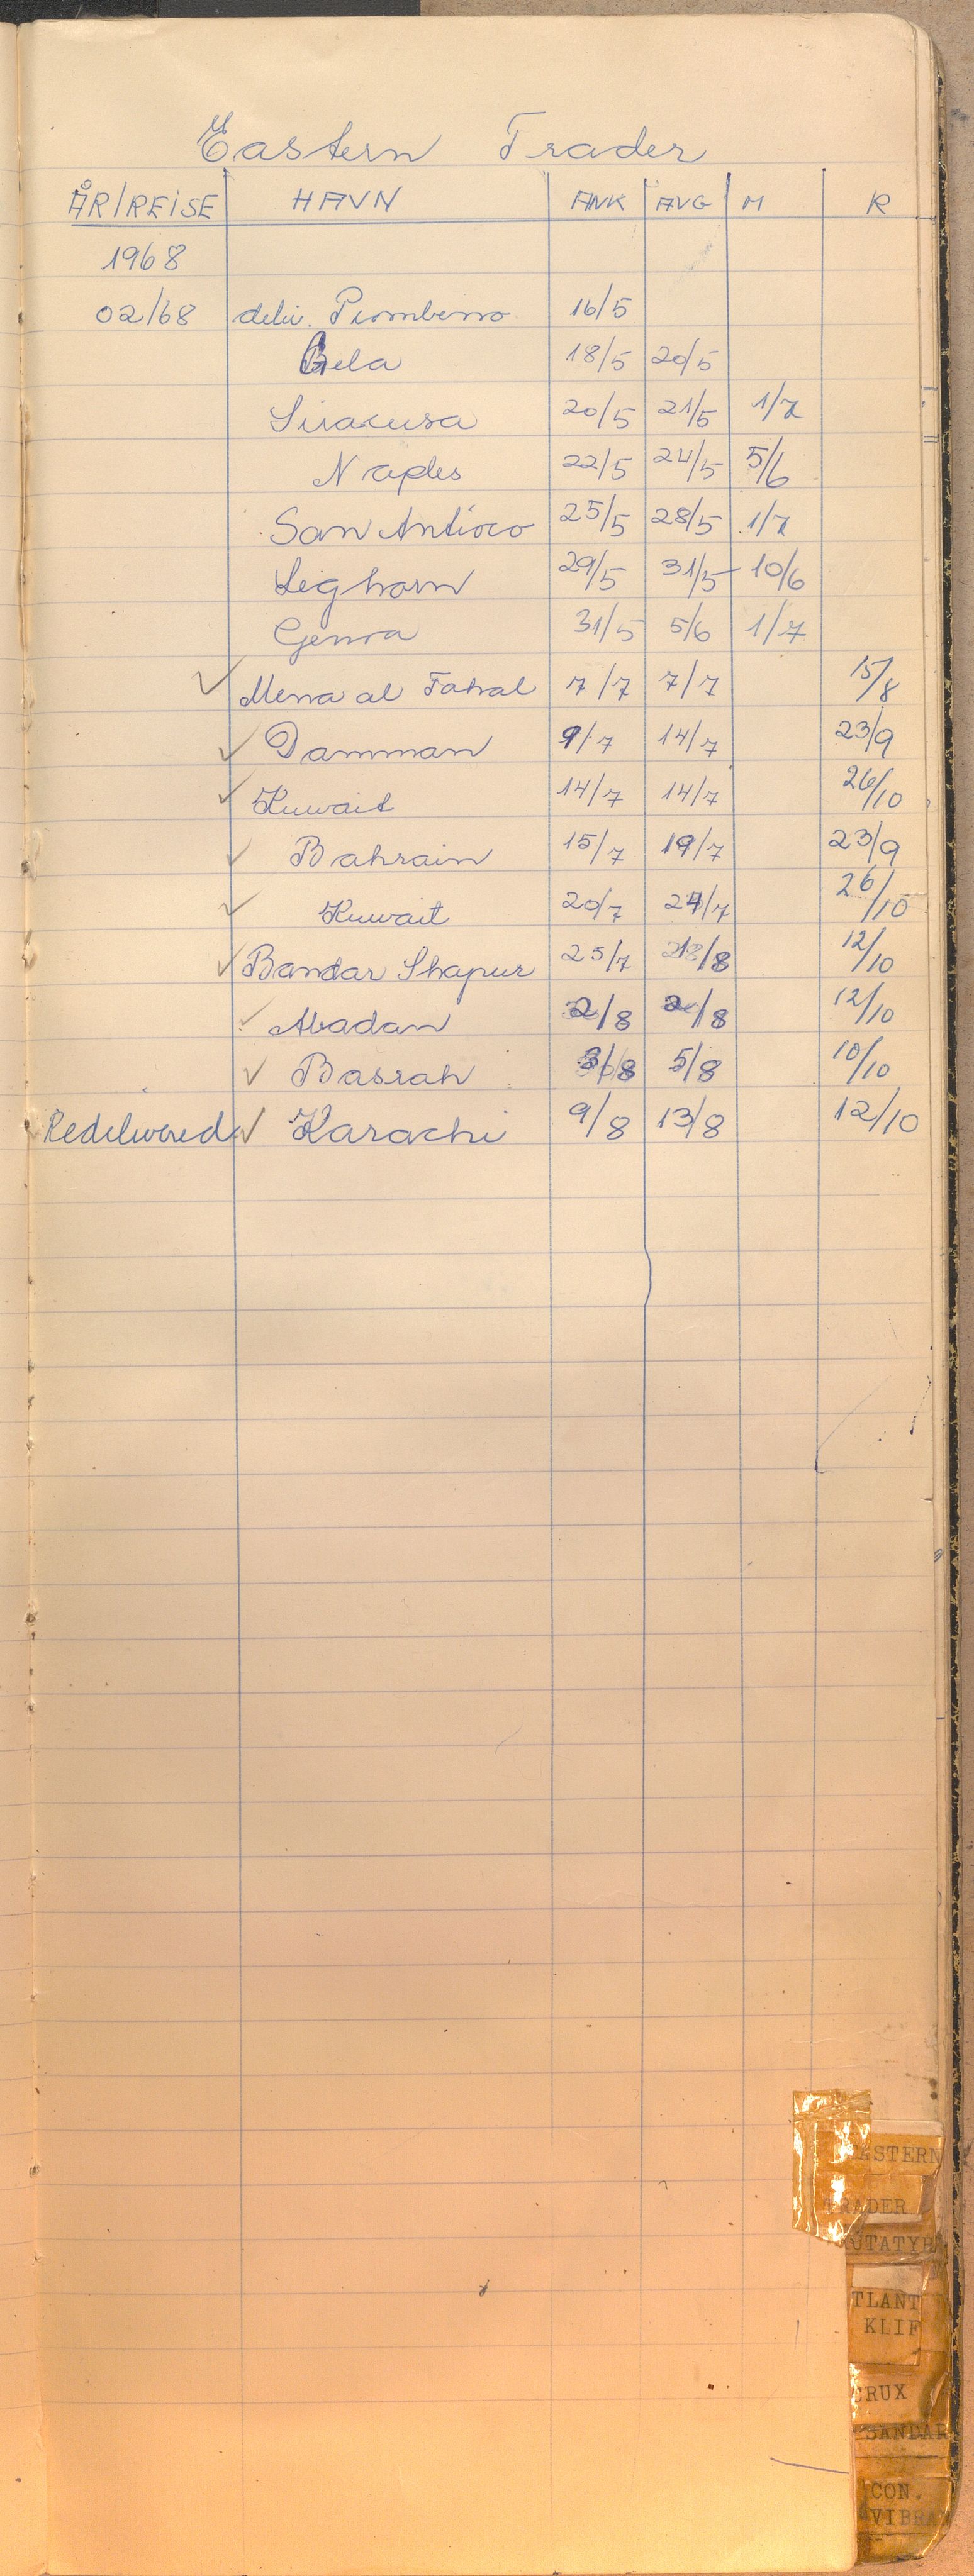 Eastern Trader
ÅR/REISE HAVN ANK AVG M R
1968
02/68 deliv. Piombino 16/5
Gela 18/5 20/5
Siracusa 20/5 21/5 1/7
Naples 22/5 24/5 5/6
San Antioco 25/5 28/5 1/7
Leghorn 29/5 31/5 10/6
Genoa 31/5 5/6 1/7
✓ Mena al Fahal 7/7 7/7 15/8
✓ Damman 9/7 14/7 23/9
✓ Kuwait 14/7 14/7 26/10
✓ Bahrain 15/7 19/7 23/9
✓ Kuwait 20/7 24/7 26/10
✓ Bandar Shapur 25/7 /8 12/10
✓ Abadan 2/8 2/8 12/10
✓ Basrah 3/8 5/8 10/10
Redelivered ✓ Karachi 9/8 13/8 12/10
EASTERN
TRADER
UTATYB
TLANT
KLIF
CRUX
SANDAR
CON.
VIBRA